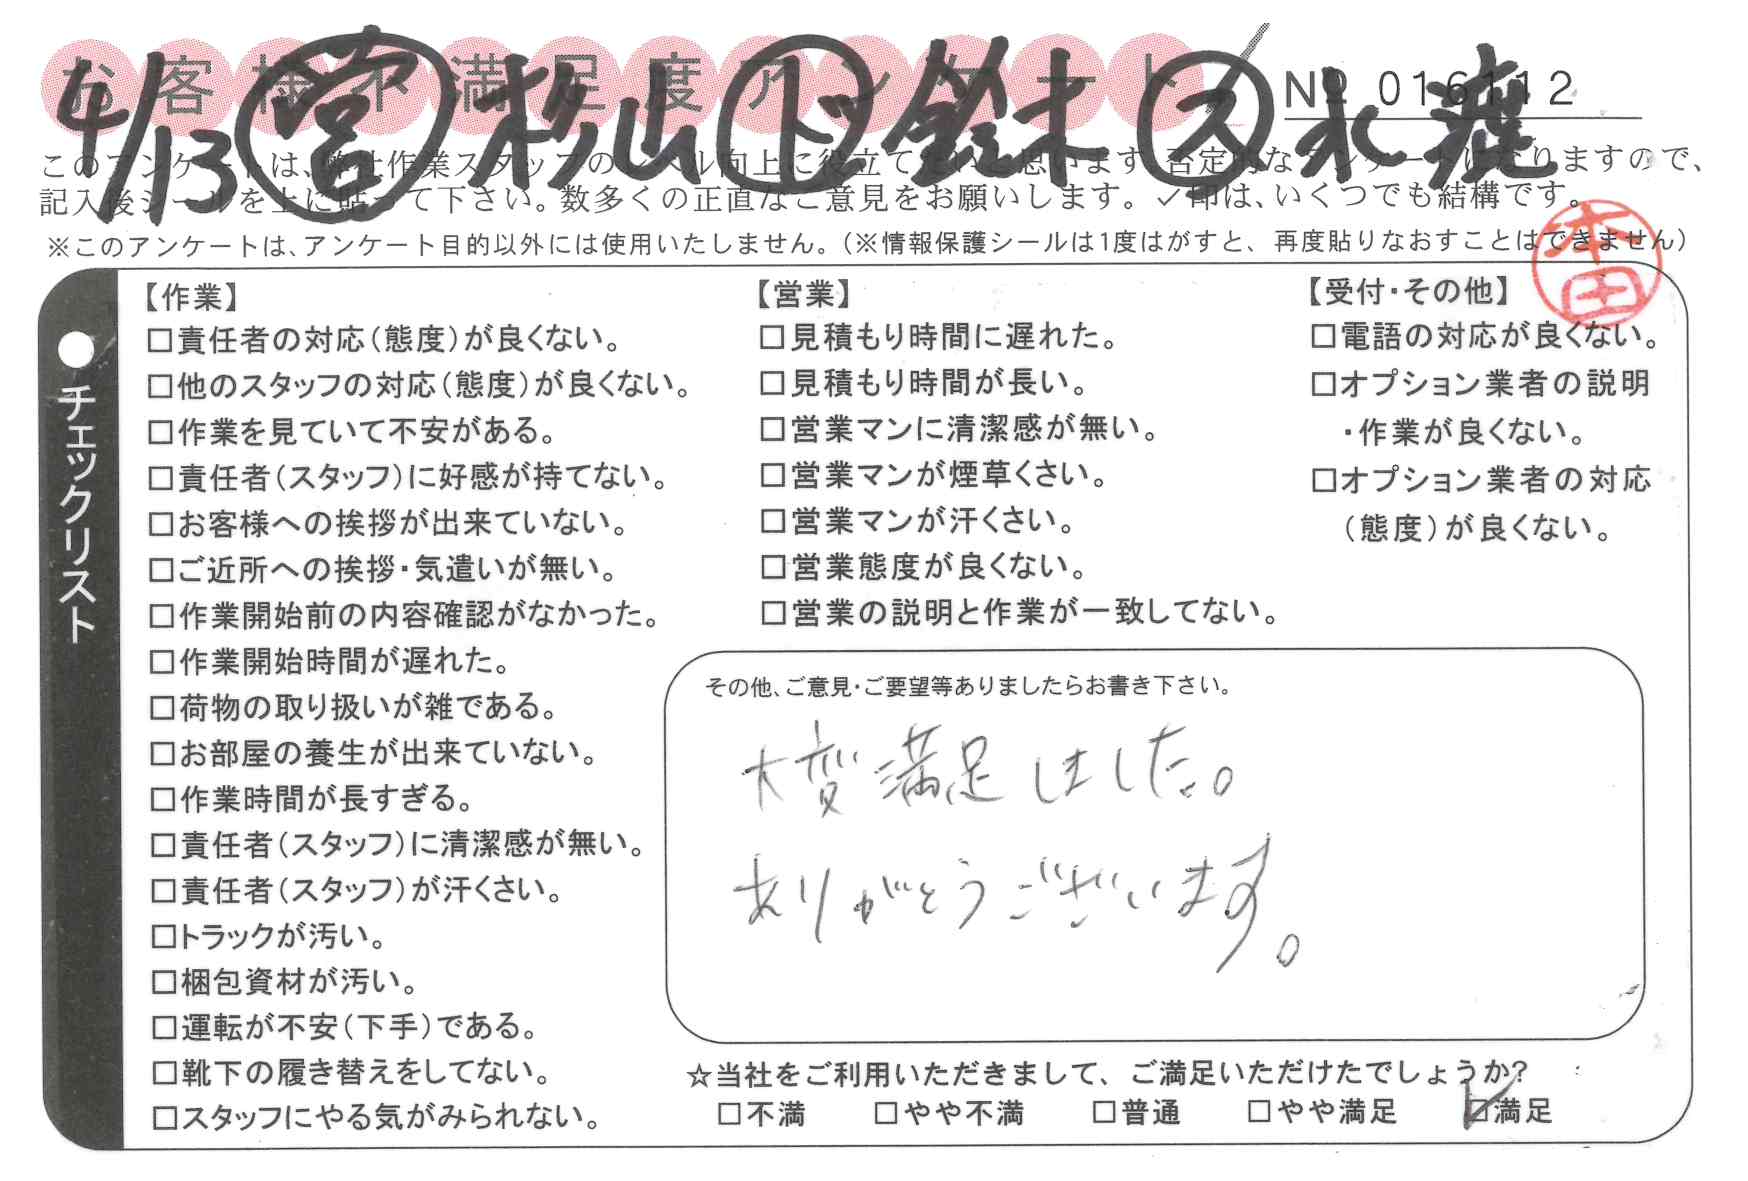 お客様不満足度アンケート
№ 016112
4/13 営 杉山 ド 鈴木 ス 永瀧
このアンケートは、弊社作業スタッフのレベル向上に役立てたいと思います。否定的なアンケートになりますので、
記入後シールを上に貼って下さい。数多くの正直なご意見をお願いします。✓印は、いくつでも結構です。
※このアンケートは、アンケート目的以外には使用いたしません。(※情報保護シールは1度はがすと、再度貼りなおすことはできません)
本田
●チェックリスト
【作業】
□責任者の対応(態度)が良くない。
□他のスタッフの対応(態度)が良くない。
□作業を見ていて不安がある。
□責任者(スタッフ)に好感が持てない。
□お客様への挨拶が出来ていない。
□ご近所への挨拶・気遣いが無い。
□作業開始前の内容確認がなかった。
□作業開始時間が遅れた。
□荷物の取り扱いが雑である。
□お部屋の養生が出来ていない。
□作業時間が長すぎる。
□責任者(スタッフ)に清潔感が無い。
□責任者(スタッフ)が汗くさい。
□トラックが汚い。
□梱包資材が汚い。
□運転が不安(下手)である。
□靴下の履き替えをしてない。
□スタッフにやる気がみられない。
【営業】
□見積もり時間に遅れた。
□見積もり時間が長い。
□営業マンに清潔感が無い。
□営業マンが煙草くさい。
□営業マンが汗くさい。
□営業態度が良くない。
□営業の説明と作業が一致してない。
【受付・その他】
□電話の対応が良くない。
□オプション業者の説明
・作業が良くない。
□オプション業者の対応
(態度)が良くない。
その他、ご意見・ご要望等ありましたらお書き下さい。
大変満足しました。
ありがとうございます。
☆当社をご利用いただきまして、ご満足いただけたでしょうか?
□不満 □やや不満 □普通 □やや満足 ☑満足